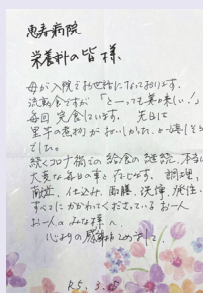 恵寿病院
栄養科の皆様
母が入院でお世話になっております。
流動食ですが「とーっても美味しい!」
毎回 完食しています。先日は
里芋の煮物がおいしかった、と嬉しそう
でした。
続くコロナ禍での給食の継続、本当に
大変な毎日の事と存じます。調理、
献立、仕込み、配膳、洗浄、発注、
すべてにかかわってくださっている お一人
お一人のみな様へ
心よりの感謝をこめまして。
R5.3.